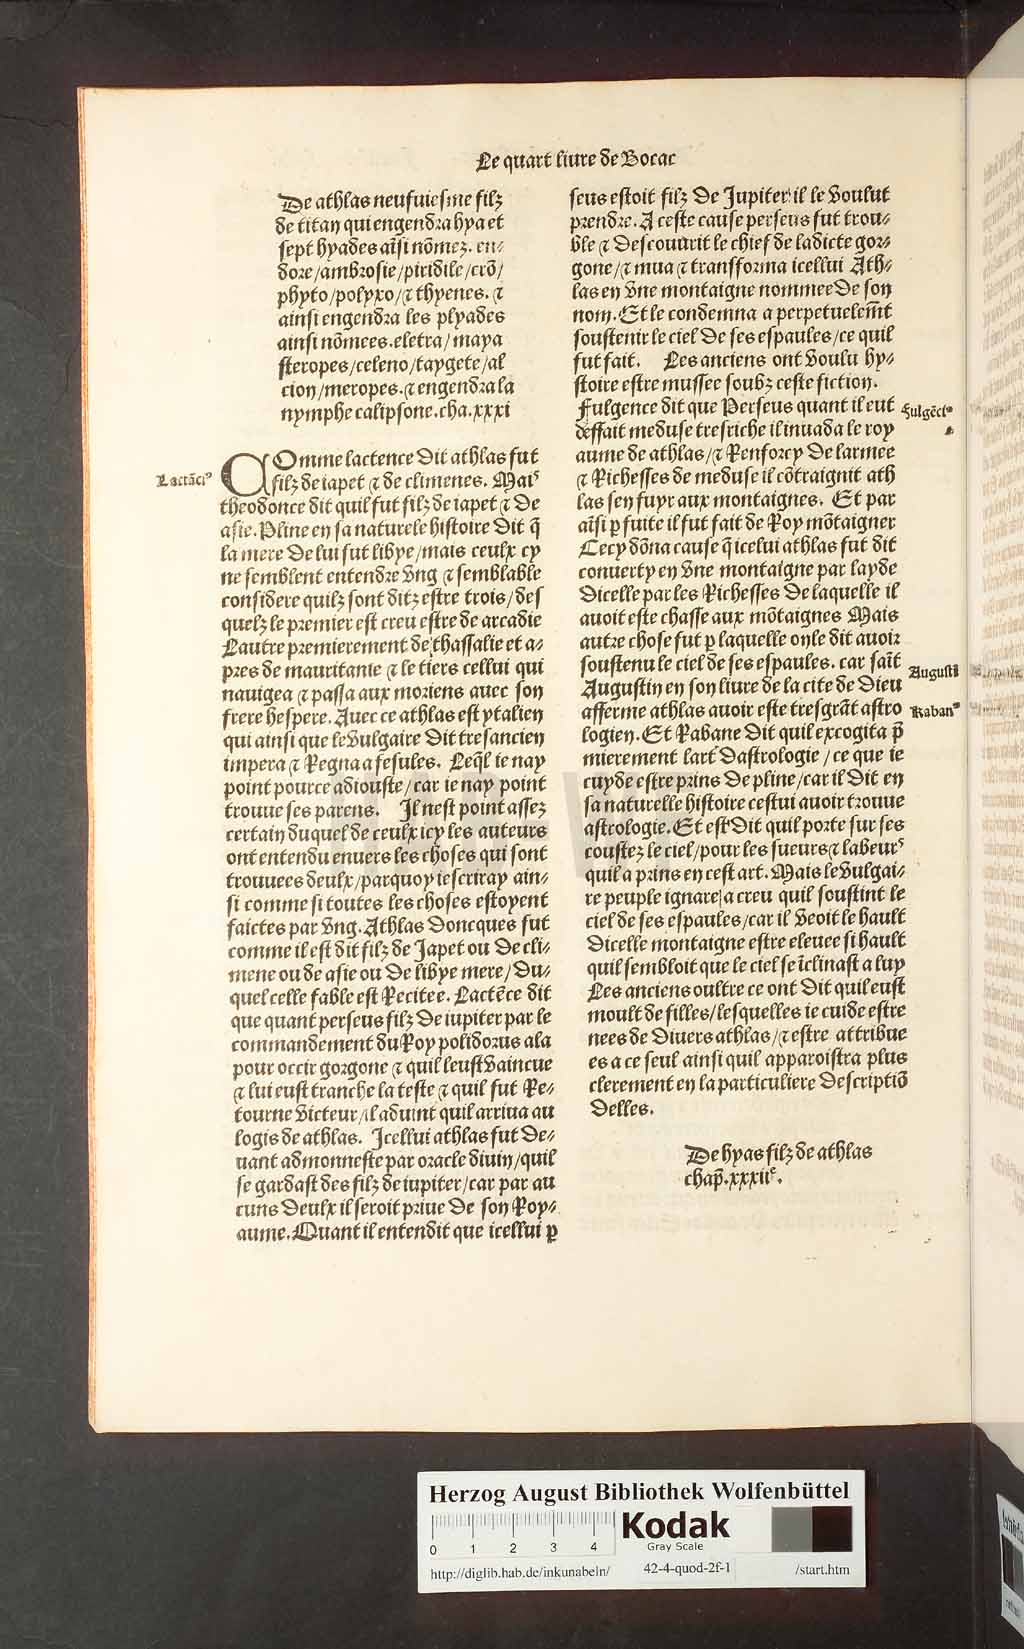 Le quart liure de Bocac
De athlas neufuiesme filz
de titan qui engendra hya et
sept hyades aīsi nōmez. en-
dore/ambrosie/piridile/crō/
phyto/polyxo/⁊ thyenes. ⁊
ainsi engendra les plyades
ainsi nōmees.eletra/maya
steropes/celeno/taygete/al
cion/meropes.⁊ engendra la
nymphe calipsone.cha.xxxi
Lactāciꝰ
COmme lactence dit athlas fut
filz de iapet ⁊ de climenes. Mais
theodonce dit quil fut filz de iapet ⁊ de
asie. Pline en sa naturele histoire dit q̄
la mere de lui fut libye/mais ceulx cy
ne semblent entendre vng ⁊ semblable
considere quilz sont ditz estre trois/des
quelz le premier est creu estre de arcadie
Lautre premierement de thassalie et a-
pres de mauritanie ⁊ le tiers cellui qui
nauigea ⁊ passa aux moriens auec son
frere hespere. Auec ce athlas est ytalien
qui ainsi que le vulgaire dit tresancien
impera ⁊ regna a fesules. Leql̄ ie nay
point pource adiouste/car ie nay point
trouue ses parens. Il nest point assez
certain duquel de ceulx icy les auteurs
ont entendu enuers les choses qui sont
trouuees deulx/parquoy ie scriray ain-
si comme si toutes les choses estoyent
faictes par vng. Athlas doncques fut
comme il est dit filz de Japet ou de cli-
mene ou de asie ou de libye mere/du-
quel celle fable est recitee. Lactēce dit
que quant perseus filz de iupiter par le
commandement du roy polidorus ala
pour occir gorgone ⁊ quil leust vaincue
⁊ lui eust tranche la teste ⁊ quil fut re-
tourne victeur/il aduint quil arriua au
logis de athlas. Icellui athlas fut de-
uant admonneste par oracle diuin/quil
se gardast des filz de iupiter/car par au
cuns deulx il seroit priue de son roy-
aume. Quant il entendit que icellui ꝑ
seus estoit filz de Jupiter il le voulut
prendre. A ceste cause perseus fut trou-
ble ⁊ descouurit le chief de ladicte gor-
gone/⁊ mua ⁊ transforma icellui Ath-
las en vne montaigne nommee de son
nom. Et le condemna a perpetuelem̄t
soustenir le ciel de ses espaules/ce quil
fut fait. Les anciens ont voulu hy-
stoire estre mussee soubz ceste fiction.
Fulgence dit que Perseus quant il eut
deffait meduse tresriche il inuada le roy
aume de athlas/⁊ renforcy de larmee
⁊ richesses de meduse il cōtraignit ath
las sen fuyr aux montaignes. Et par
aīsi ꝑ fuite il fut fait de roy mōtaigner
Cecy dōna cause q̄ icelui athlas fut dit
conuerty en vne montaigne par layde
dicelle par les richesses de laquelle il
auoit este chasse aux mōtaignes Mais
autre chose fut ꝑ laquelle on le dit auoir
soustenu le ciel de ses espaules. car saīt
Augustin en son liure de la cite de dieu
afferme athlas auoir este tresgrāt astro
logien. Et Rabane dit quil excogita p̄
mierement lart dastrologie/ce que ie
cuyde estre prins de pline/car il dit en
sa naturelle histoire cestui auoir trouue
astrologie. Et est dit quil porte sur ses
coustez le ciel/pour les sueurs ⁊ labeurs
quil a prins en cest art. Mais le vulgai-
re peuple ignare a creu quil soustint le
ciel de ses espaules/car il veoit le hault
dicelle montaigne estre eleuee si hault
quil sembloit que le ciel se īclinast a luy
Les anciens oultre ce ont dit quil eust
moult de filles/lesquelles ie cuide estre
nees de diuers athlas/⁊ estre attribue
es a ce seul ainsi quil apparoistra plus
clerement en la particuliere descriptiō
delles.
Fulgēciꝰ
Augusti
Rabanꝰ
De hyas filz de athlas
chap̄.xxxiiᵉ.
Herzog August Bibliothek Wolfenbüttel
0 1 2 3 4
Kodak
Gray Scale
http://diglib.hab.de/inkunabeln/ 42-4-quod-2f-1 /start.htm